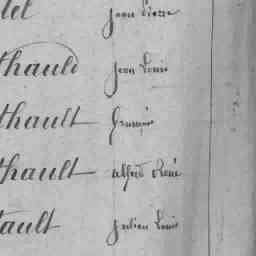 tel Jean Pierre
thauld Jean Louis
thault François
thault alfred René
tault Julien Louis